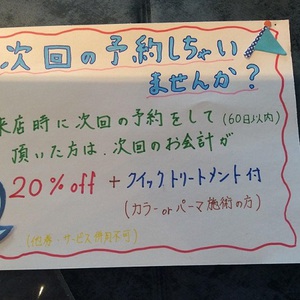 次回の予約しちゃい
ませんか?
来店時に次回の予約をして(60日以内)
頂いた方は、次回のお会計が
20%off + クイックトリートメント付
(カラー or パーマ施術の方)
(他券・サービス併用不可)